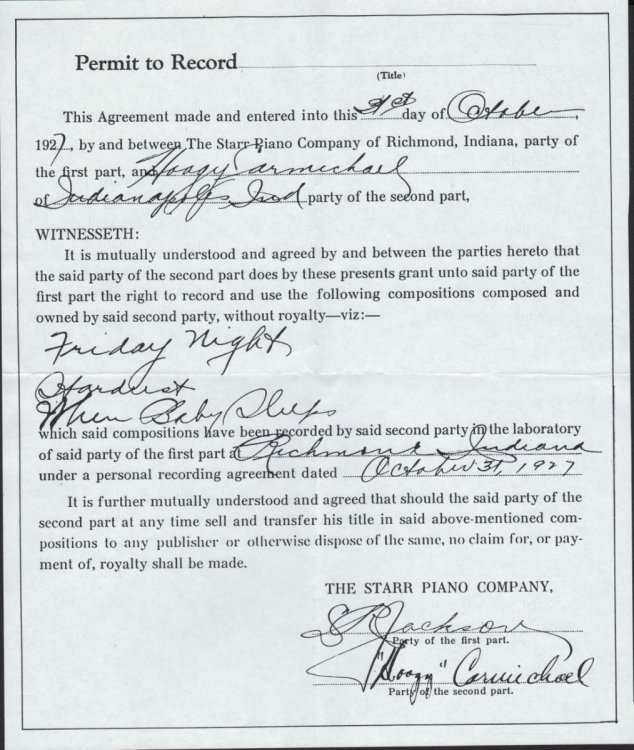 Permit to Record
(Title)
This Agreement made and entered into this 31st day of October,
1927, by and between The Starr Piano Company of Richmond, Indiana, party of
the first part, and Hoagy Carmichael
of Indianapolis, Ind party of the second part,
WITNESSETH:
It is mutually understood and agreed by and between the parties hereto that
the said party of the second part does by these presents grant unto said party of the
first part the right to record and use the following compositions composed and
owned by said second party, without royalty—viz:—
Friday Night
Stardust
When Baby Sleeps
which said compositions have been recorded by said second party in the laboratory
of said party of the first part at Richmond Indiana
under a personal recording agreement dated October 31, 1927
It is further mutually understood and agreed that should the said party of the
second part at any time sell and transfer his title in said above-mentioned com-
positions to any publisher or otherwise dispose of the same, no claim for, or pay-
ment of, royalty shall be made.
THE STARR PIANO COMPANY,
S R Jackson
Party of the first part.
"Hoagy" Carmichael
Party of the second part.